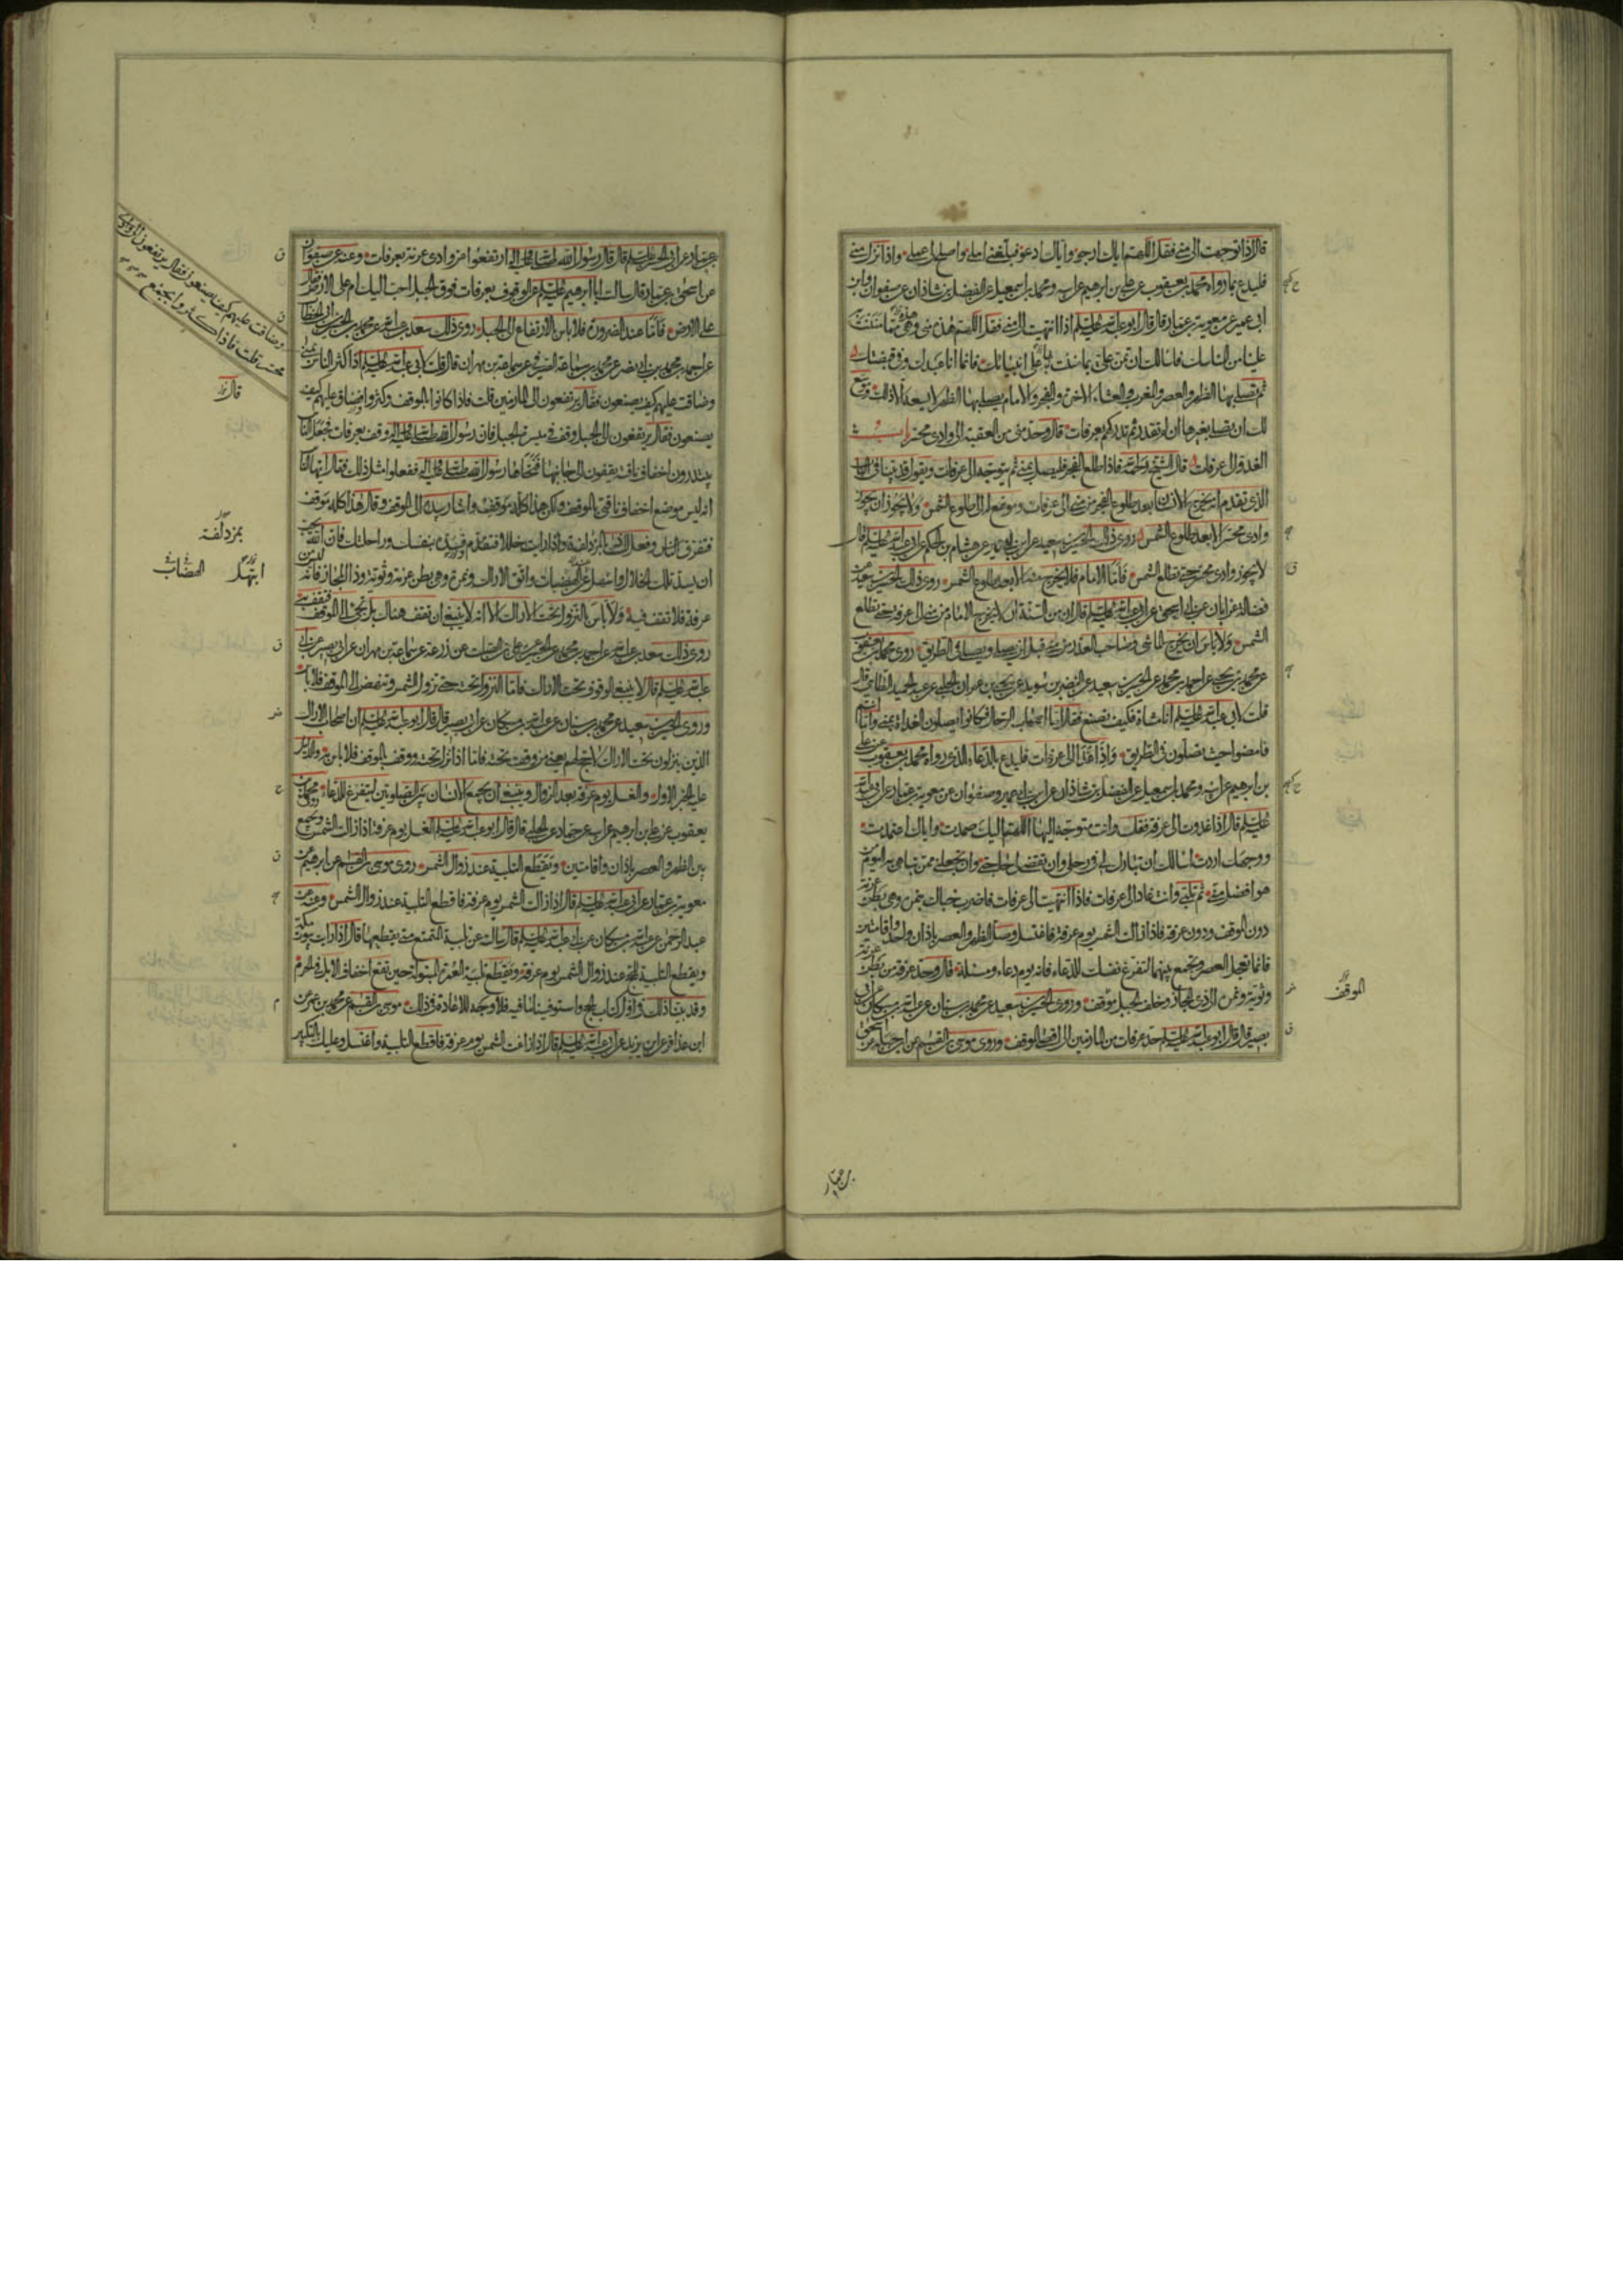 قال اذا توجهت الى منى فقل اللهم اياك ارجو واياك ادعو فبلغني املي واصلح لي عملي واذا نزل منى
فليدع بما رواه محمد بن يعقوب عن علي بن ابرهيم عن ابيه ومحمد بن اسمعيل عن الفضل بن شاذان عن صفوان وابن
ابي عمير عن معوية بن عمار قال قال ابو عبد الله عليه السلم اذا انتهيت الى منى فقل اللهم هذه منى وهي مما مننت
علينا من المناسك فاسالك ان تمن علي بما مننت به على انبيائك فانما انا عبدك وفي قبضتك
ثم تصلي بها الظهر والعصر والمغرب والعشاء الاخرة والفجر والامام يصلي بها الظهر لا يسعه الا ذلك وموسع
لك ان تصلي بغيرها ان لم تقدر ثم تدركهم بعرفات قال وحد منى من العقبة الى وادي محسر باب
الغدو الى عرفات قال الشيخ رحمه الله فاذا طلع الفجر فليصل بمنى ثم يتوجه الى عرفات ويقول قد بينا في الباب
الذي تقدم انه يخرج الانسان بعد طلوع الفجر من منى الى عرفات وموضع له الى طلوع الشمس ولا يجوز ان يجوز
وادي محسر الا بعد طلوع الشمس روى ذلك الحسين بن سعيد عن ابن ابي عمير عن هشام بن الحكم عن ابي عبد الله عليه السلم قال
لا يجوز وادي محسر حتى تطلع الشمس فاما الامام فلا يخرج منها الا بعد طلوع الشمس روى ذلك الحسين بن سعيد عن
فضالة عن ابان عن ابي اسحق عن ابي عبد الله عليه السلم قال ان من السنة ان لا يخرج الامام من منى الى عرفة حتى تطلع
الشمس ولا باس ان يخرج الماشي وصاحب العذر من منى قبل ان يصلي ويصلي في الطريق روى محمد بن يعقوب
عن محمد بن يحيى عن احمد بن محمد عن الحسين بن سعيد عن النضر بن سويد عن يحيى بن عمران الحلبي عن عبد الحميد الطائي قال
قلت لابي عبد الله عليه السلم انا مشاة فكيف نصنع فقال اما اصحاب الرحال فكانوا يصلون الغداة بمنى واما انتم
فامضوا حيث تصلون في الطريق واذا غدا الى عرفات فليدع بالدعاء الذي رواه محمد بن يعقوب عن علي
بن ابرهيم عن ابيه ومحمد بن اسمعيل عن الفضل بن شاذان عن ابن ابي عمير وصفوان عن معوية بن عمار عن ابي عبد الله
عليه السلم قال اذا غدوت الى عرفة فقل وانت متوجه اليها اللهم اليك صمدت واياك اعتمدت
ووجهك اردت اسالك ان تبارك لي في رحلتي وان تقضي لي حاجتي وان تجعلني ممن تباهي به اليوم من
هو افضل مني ثم تلبي وانت غاد الى عرفات فاذا انتهيت الى عرفات فاضرب خباك بنمرة وهي بطن عرنة
دون الموقف ودون عرفة فاذا زالت الشمس يوم عرفة فاغتسل وصل الظهر والعصر باذان واحد واقامتين
فانما تعجل العصر وتجمع بينهما لتفرغ نفسك للدعاء فانه يوم دعاء ومسئلة قال وحد عرفة من بطن عرنة
وثوية ونمرة الى ذي المجاز وخلف الجبل موقف وروى الحسين بن سعيد عن محمد بن سنان عن عبد الله بن مسكان عن ابي
بصير قال قال ابو عبد الله عليه السلم حد عرفات من المازمين الى اقصى الموقف وروى موسى بن القسم عن ابن جبلة عن اسحق
الموقف
بن عمار
بن عمار عن ابي الحسن عليه السلم قال قال رسول الله صلى الله عليه واله ارتفعوا من وادي عرنة بعرفات وعنه عن صفوان
عن اسحق بن عمار قال سالت ابا ابرهيم عليه السلم عن الوقوف بعرفات فوق الجبل احب اليك ام على الارض فقال
على الارض فاما عند الضرورة فلا باس بالارتفاع الى الجبل روى ذلك سعد بن عبد الله عن محمد بن الحسين بن ابي الخطاب
عن احمد بن محمد بن ابي نصر عن محمد بن سماعة الصيرفي عن سماعة بن مهران قال قلت لابي عبد الله عليه السلم اذا كثر الناس بمنى
وضاقت عليهم كيف يصنعون فقال يرتفعون الى المازمين قلت فاذا كانوا بالموقف وكثروا وضاق عليهم كيف
يصنعون فقال يرتفعون الى الجبل وقف في ميسرة الجبل فان رسول الله صلى الله عليه واله وقف بعرفات فجعل الناس
يبتدرون اخفاف ناقته يقفون الى جانبها فنحاها رسول الله صلى الله عليه واله ففعلوا مثل ذلك فقال ايها الناس
انه ليس موضع اخفاف ناقتي بالموقف ولكن هذا كله موقف واشار بيده الى الموقف وقال هذا كله موقف
فتفرق الناس وفعل ذلك بالمزدلفة واذا رايت خللا فتقدم فسده بنفسك وراحلتك فان الله يحب
ان يسد تلك الخلال واسفل عن الهضبات واتق الاراك ونمرة وهي بطن عرنة وثوية وذا المجاز فانه ليس من
عرفة فلا تقف فيه ولا باس بالنزول تحت الاراك الا انه لا ينبغي ان تقف هناك بل تجئ الى الموقف فتقف به
روى ذلك سعد بن عبد الله عن احمد بن محمد عن الحسين عن علي بن الصلت عن زرعة عن سماعة بن مهران عن ابي بصير عن ابي
عبد الله عليه السلم قال لا ينبغي الوقوف تحت الاراك فاما النزول تحته حتى تزول الشمس وتنهض الى الموقف فلا باس
وروى الحسين بن سعيد عن محمد بن سنان عن عبد الله بن مسكان عن ابي بصير قال قال ابو عبد الله عليه السلم ان اصحاب الاراك
الذين ينزلون تحت الاراك لا حج لهم يعني من وقف تحته فاما اذا نزل تحته ووقف بالموقف فلا باس به
على الخبر الاول والغسل يوم عرفة بعد الزوال وينبغي ان يجمع الانسان بين الصلوتين ليتفرغ للدعاء روى محمد بن
يعقوب عن علي بن ابرهيم عن ابيه عن حماد عن الحلبي قال قال ابو عبد الله عليه السلم الغسل يوم عرفة اذا زالت الشمس وتجمع
بين الظهر والعصر باذان واقامتين وتقطع التلبية عند زوال الشمس روى موسى بن القسم عن ابرهيم عن
معوية بن عمار عن ابي عبد الله عليه السلم قال اذا زالت الشمس يوم عرفة فاقطع التلبية عند زوال الشمس وعنه عن
عبد الرحمن عن عبد الله بن مسكان عن ابي عبد الله عليه السلم قال سالته عن تلبية المتمتع متى يقطعها قال اذا رايت بيوت مكة
ويقطع التلبية للحج عند زوال الشمس يوم عرفة ويقطع تلبية العمرة المبتولة حين تقع اخفاف الابل في الحرم
وقد بينا ذلك في اول كتاب الحج واستوفينا ما فيه فلا وجه للاعادة في ذلك موسى بن القسم عن محمد بن عمر بن
ابن عذافر عن ابن يزيد عن ابي عبد الله عليه السلم قال اذا زاغت الشمس يوم عرفة فاقطع التلبية واغتسل وعليك بالتكبير
وضاقت عليهم كيف يصنعون فقال يرتفعون الى وادي
محسر قلت فاذا كثروا بجمع
قال
بمزدلفة
ابتهل
الهضاب